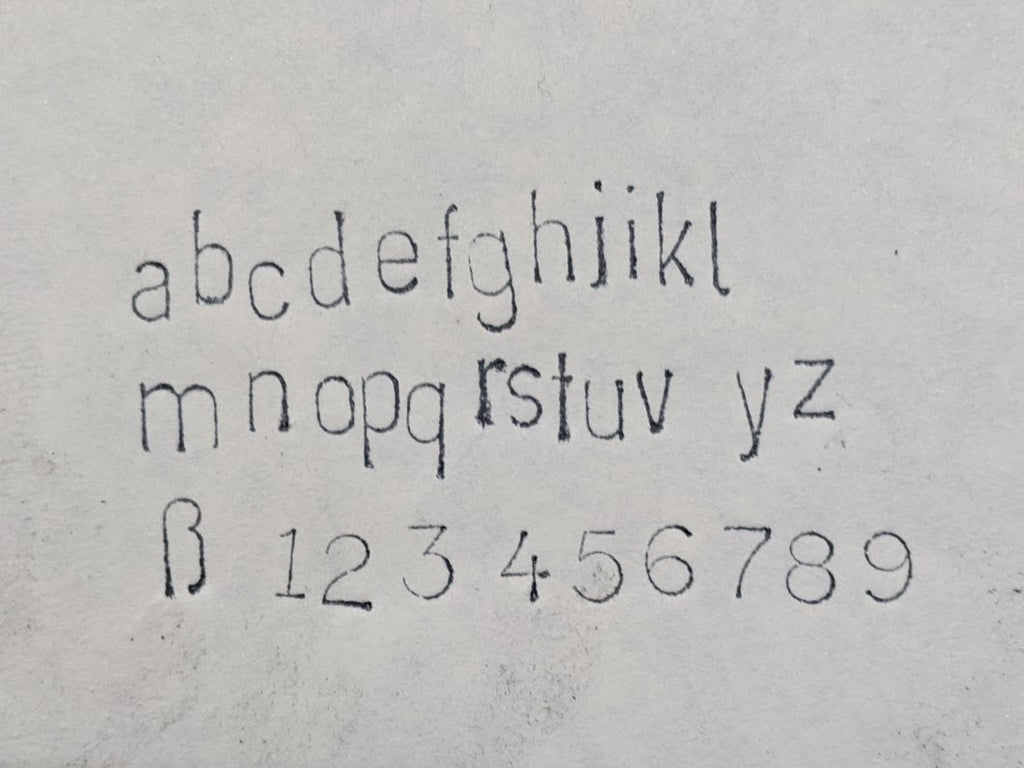 abcdefghjikl
mnopqrstuv yz
ß 123 456789